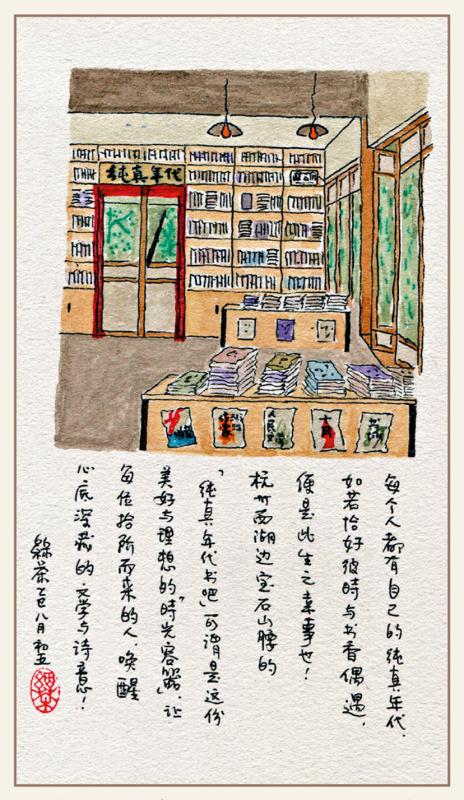 纯真年代
人民文学
每个人都有自己的纯真年代，
如若恰好彼時与书香偶遇，
便是此生之幸事也！
杭州西湖边宝石山腰的
“纯真年代书吧”可谓是这份
美好与理想的“時光容器”，让
每位拾阶而来的人，唤醒
心底深藏的文学与诗意！
綠茶乙巳八月初五